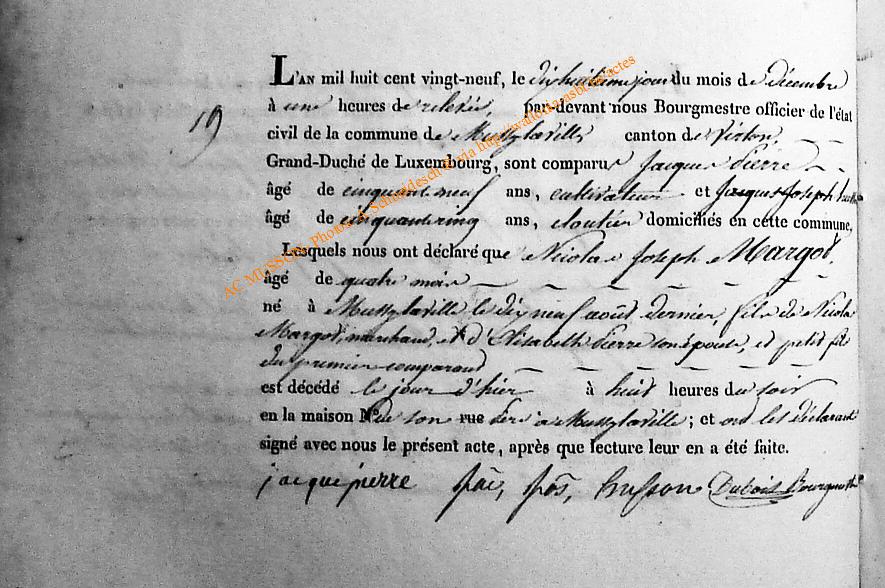 L'AN mil huit cent vingt-neuf, le dixhuitieme jour du mois de décembre
à une heures de relevée, par-devant nous Bourgmestre officier de l'état
19
civil de la commune de Mussylaville canton de Virton,
Grand-Duché de Luxembourg, sont comparus Jacques Pierre
âgé de cinquante neuf ans, cultivateur et Jacques Joseph
âgé de cinquantecinq ans, cloutier domiciliés en cette commune,
Lesquels nous ont déclaré que Nicolas Joseph Margot,
âgé de quatre mois
né à Mussylaville le dixneuf août dernier, fils de Nicolas
Margot, marchand, et d'Elisabeth Pierre son épouse, et petit fils
du premier comparant
est décédé le jour d'hier à huit heures du soir
en la maison N.º de son rue Père à Mussylaville; et ont les déclarants
signé avec nous le présent acte, après que lecture leur en a été faite.
jacque pierre jac, jos, husson Dubois Bourgmestre
AC MUSSON, Photos A. Schmedesch via http://wallonia.asbl/actes